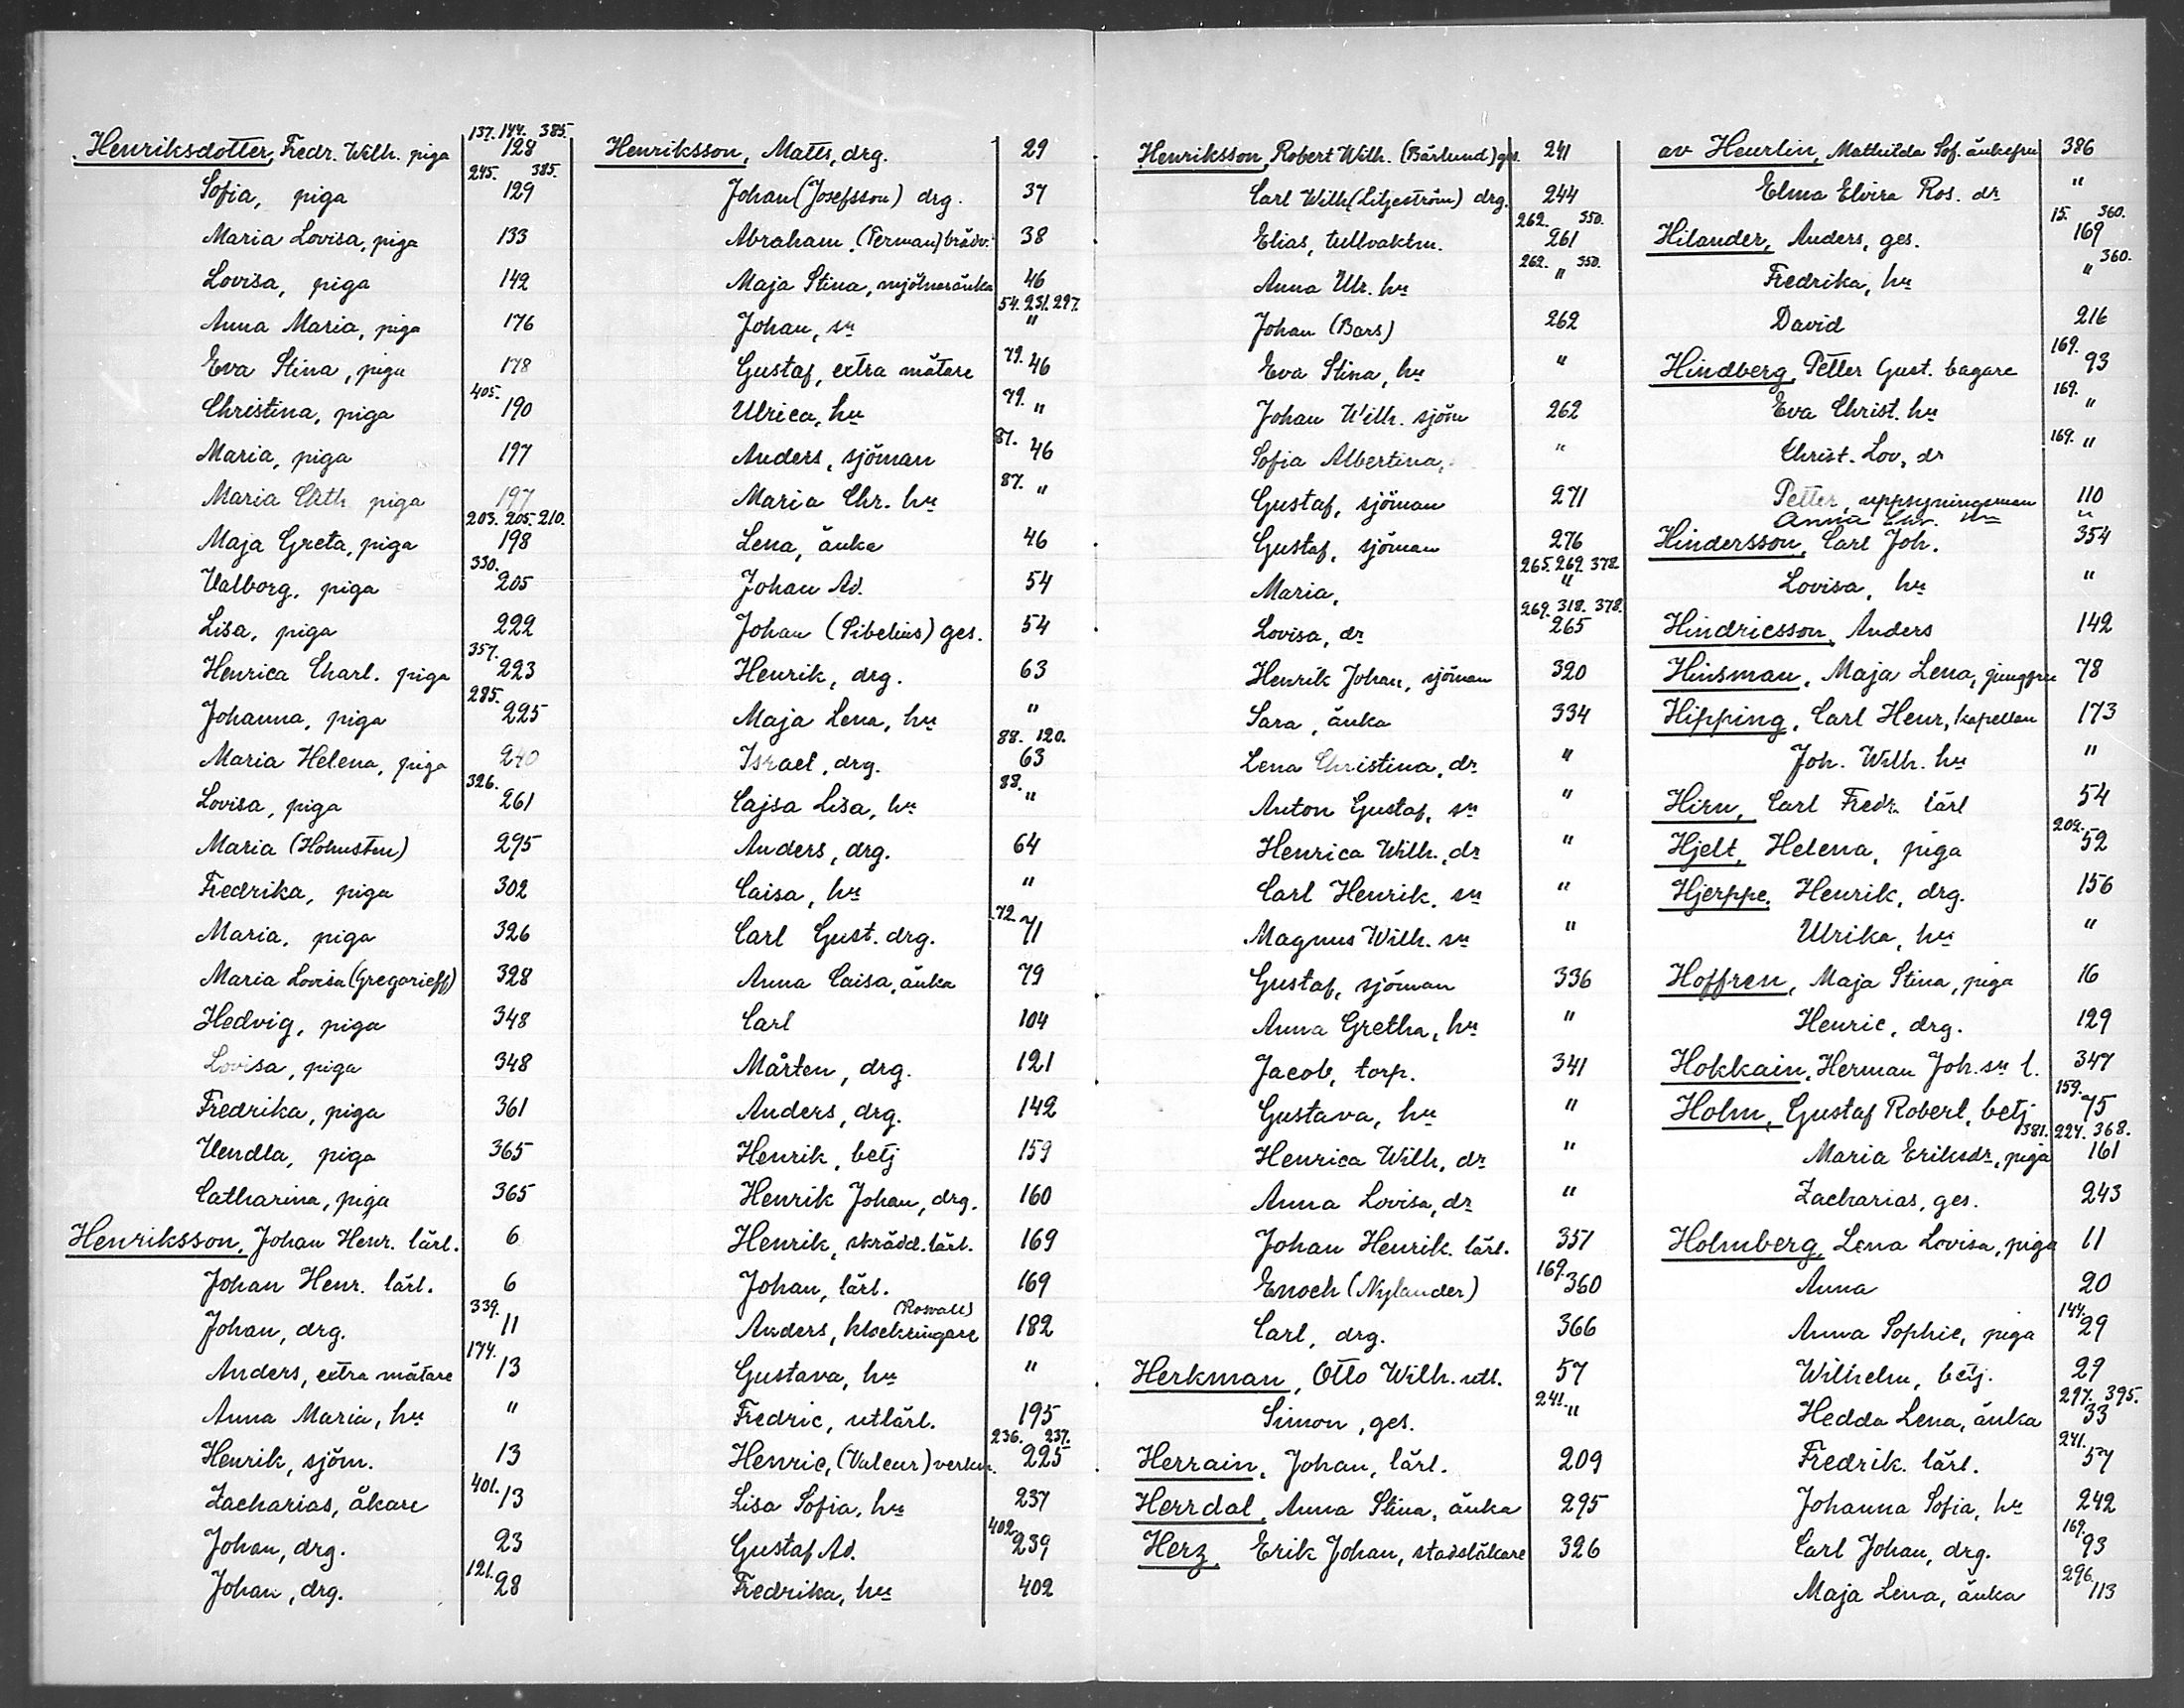 137. 144. 385.
Henriksdotter, Fredr. Wilh. piga 128
245. 385.
Sofia, piga 129
Maria Lovisa, piga 133
Lovisa, piga 142
Anna Maria, piga 176
Eva Stina, piga 178
405.
Christina, piga 190
Maria, piga 197
Maria Cath piga 197
203. 205. 210.
Maja Greta, piga 198
330.
Valborg, piga 205
Lisa, piga 222
357.
Henrica Charl. piga 223
285.
Johanna, piga 225
Maria Helena, piga 240
326.
Lovisa, piga 261
Maria (Holmsten) 295
Fredrika, piga 302
Maria, piga 326
Maria Lovisa (Gregorieff) 328
Hedvig, piga 348
Lovisa, piga 348
Fredrika, piga 361
Vendla, piga 365
Catharina, piga 365
Henriksson, Johan Henr. lärl. 6
Johan Henr. lärl. 6
339.
Johan, drg. 11
174.
Anders, extra mätare 13
Anna Maria, hu "
Henrik, sjöm. 13
401.
Zacharias, åkare 13
Johan, drg. 23
121.
Johan, drg. 28
Henriksson, Matts, drg. 29
Johan (Josefsson) drg. 37
Abraham, (Ferman) brädv. 38
Maja Stina, mjölnaränka 46
54. 231. 297.
Johan, sn "
Gustaf, extra mätare 79. 46
Ulrica, hu 79. "
Anders, sjöman 87. 46
Maria Chr. hu 87. "
Lena, änka 46
Johan Ad. 54
Johan (Sibelius) ges. 54
Henrik, drg. 63
Maja Lena, hu "
88. 120.
Israel, drg. 63
Cajsa Lisa, hu 88. "
Anders, drg. 64
Caisa, hu "
Carl Gust. drg. 72. 71
Anna Caisa, änka 79
Carl 104
Mårten, drg. 121
Anders, drg. 142
Henrik, betj 159
Henrik Johan, drg. 160
Henrik, skrädd. lärl. 169
Johan, lärl. 169
(Rosvall)
Anders, klockringare 182
Gustava, hu "
Fredric, utlärl. 195
236. 237.
Henric, (Valeur) verkm. 225
Lisa Sofia, hu 237
402
Gustaf Ad. 239
Fredrika, hu 402
Henriksson, Robert Wilh. (Bärlund) ges. 241
Carl Wilh. (Liljeström) drg. 244
262. 350.
Elias, tullvaktm. 261
262. 350.
Anna Ulr. hu "
Johan (Bars) 262
Eva Stina, hu "
Johan Wilh. sjöm 262
Sofia Albertina, "
Gustaf, sjöman 271
Gustaf, sjöman 276
265. 269. 378
Maria, "
269. 318. 378.
Lovisa, dr 265
Henrik Johan, sjöman 320
Sara, änka 334
Lena Christina, dr "
Anton Gustaf, sn "
Henrica Wilh., dr "
Carl Henrik, sn "
Magnus Wilh. sn "
Gustaf, sjöman 336
Anna Gretha, hu "
Jacob, torp. 341
Gustava, hu "
Henrica Wilh, dr "
Anna Lovisa, dr "
Johan Henrik. lärl. 357
Enoch (Nylander) 169. 360
Carl, drg. 366
Herkman, Otto Wilh. utl. 57
Simon, ges. 241. "
Herrain, Johan, lärl. 209
Herrdal, Anna Stina, änka 295
Herz, Erik Johan, stadsläkare 326
av Heurlin, Mathilda Sof. änkefru 386
Elma Elvira Ros. dr "
15. 360.
Hilander, Anders, ges. 169
360.
Fredrika, hu "
David 216
169.
Hindberg, Petter Gust. bagare 93
169.
Eva Christ. hu "
Christ. Lov, dr 169. "
Petter, uppsyningsman 110
Anna hu "
Hindersson, Carl Joh. 354
Lovisa, hu "
Hindricsson, Anders 142
Hinsman, Maja Lena, jungfru 78
Hipping, Carl Henr, kapellan 173
Joh. Wilh. hu "
Hirn, Carl Fredr. lärl 54
202.
Hjelt, Helena, piga 52
Hjerppe, Henrik, drg. 156
Ulrika, hu "
Hoffren, Maja Stina, piga 16
Henric, drg. 129
Hokkain, Herman Joh. sn l. 347
159.
Holm, Gustaf Robert, betj 75
381. 224. 368.
Maria Eriksdr, piga 161
Zacharias, ges. 243
Holmberg, Lena Lovisa, piga 11
Anna 20
144.
Anna Sophie, piga 29
Wilhelm, betj. 29
297. 395.
Hedda Lena, änka 33
241.
Fredrik. lärl. 57
Johanna Sofia, hu 242
169.
Carl Johan, drg. 93
296.
Maja Lena, änka 113